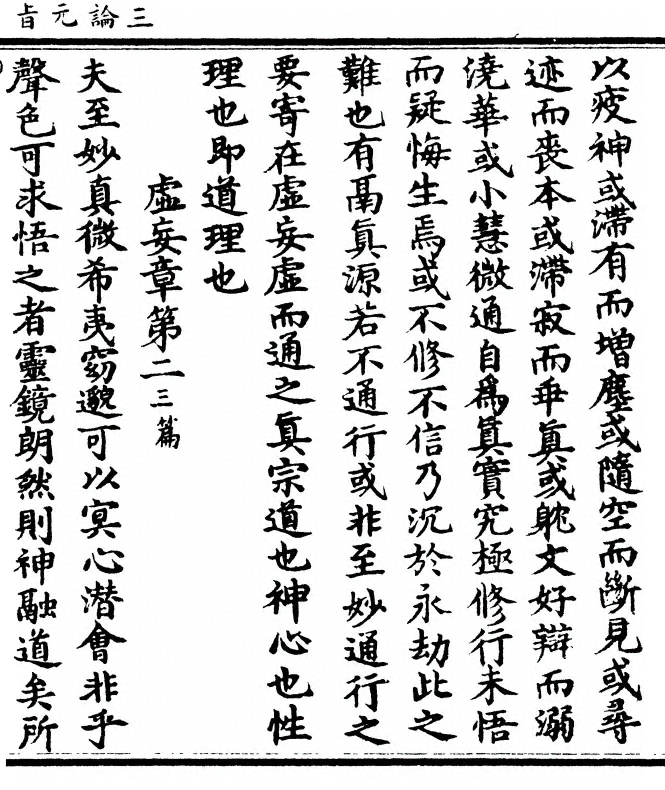 三論元旨
以疲神或滯有而增塵或隨空而斷見或尋
迹而喪本或滯寂而乖真或躭文好辯而溺
澆華或小慧微通自為真實究極修行未悟
而疑悔生焉或不修不信乃沉於永劫此之
難也有鬲真源若不通行或非至妙通行之
要寄在虛妄虛而通之真宗道也神心也性
理也即道理也
虛妄章第二三篇
夫至妙真微希夷窈邈可以冥心潛會非乎
聲色可求悟之者靈鏡朗然則神融道矣所